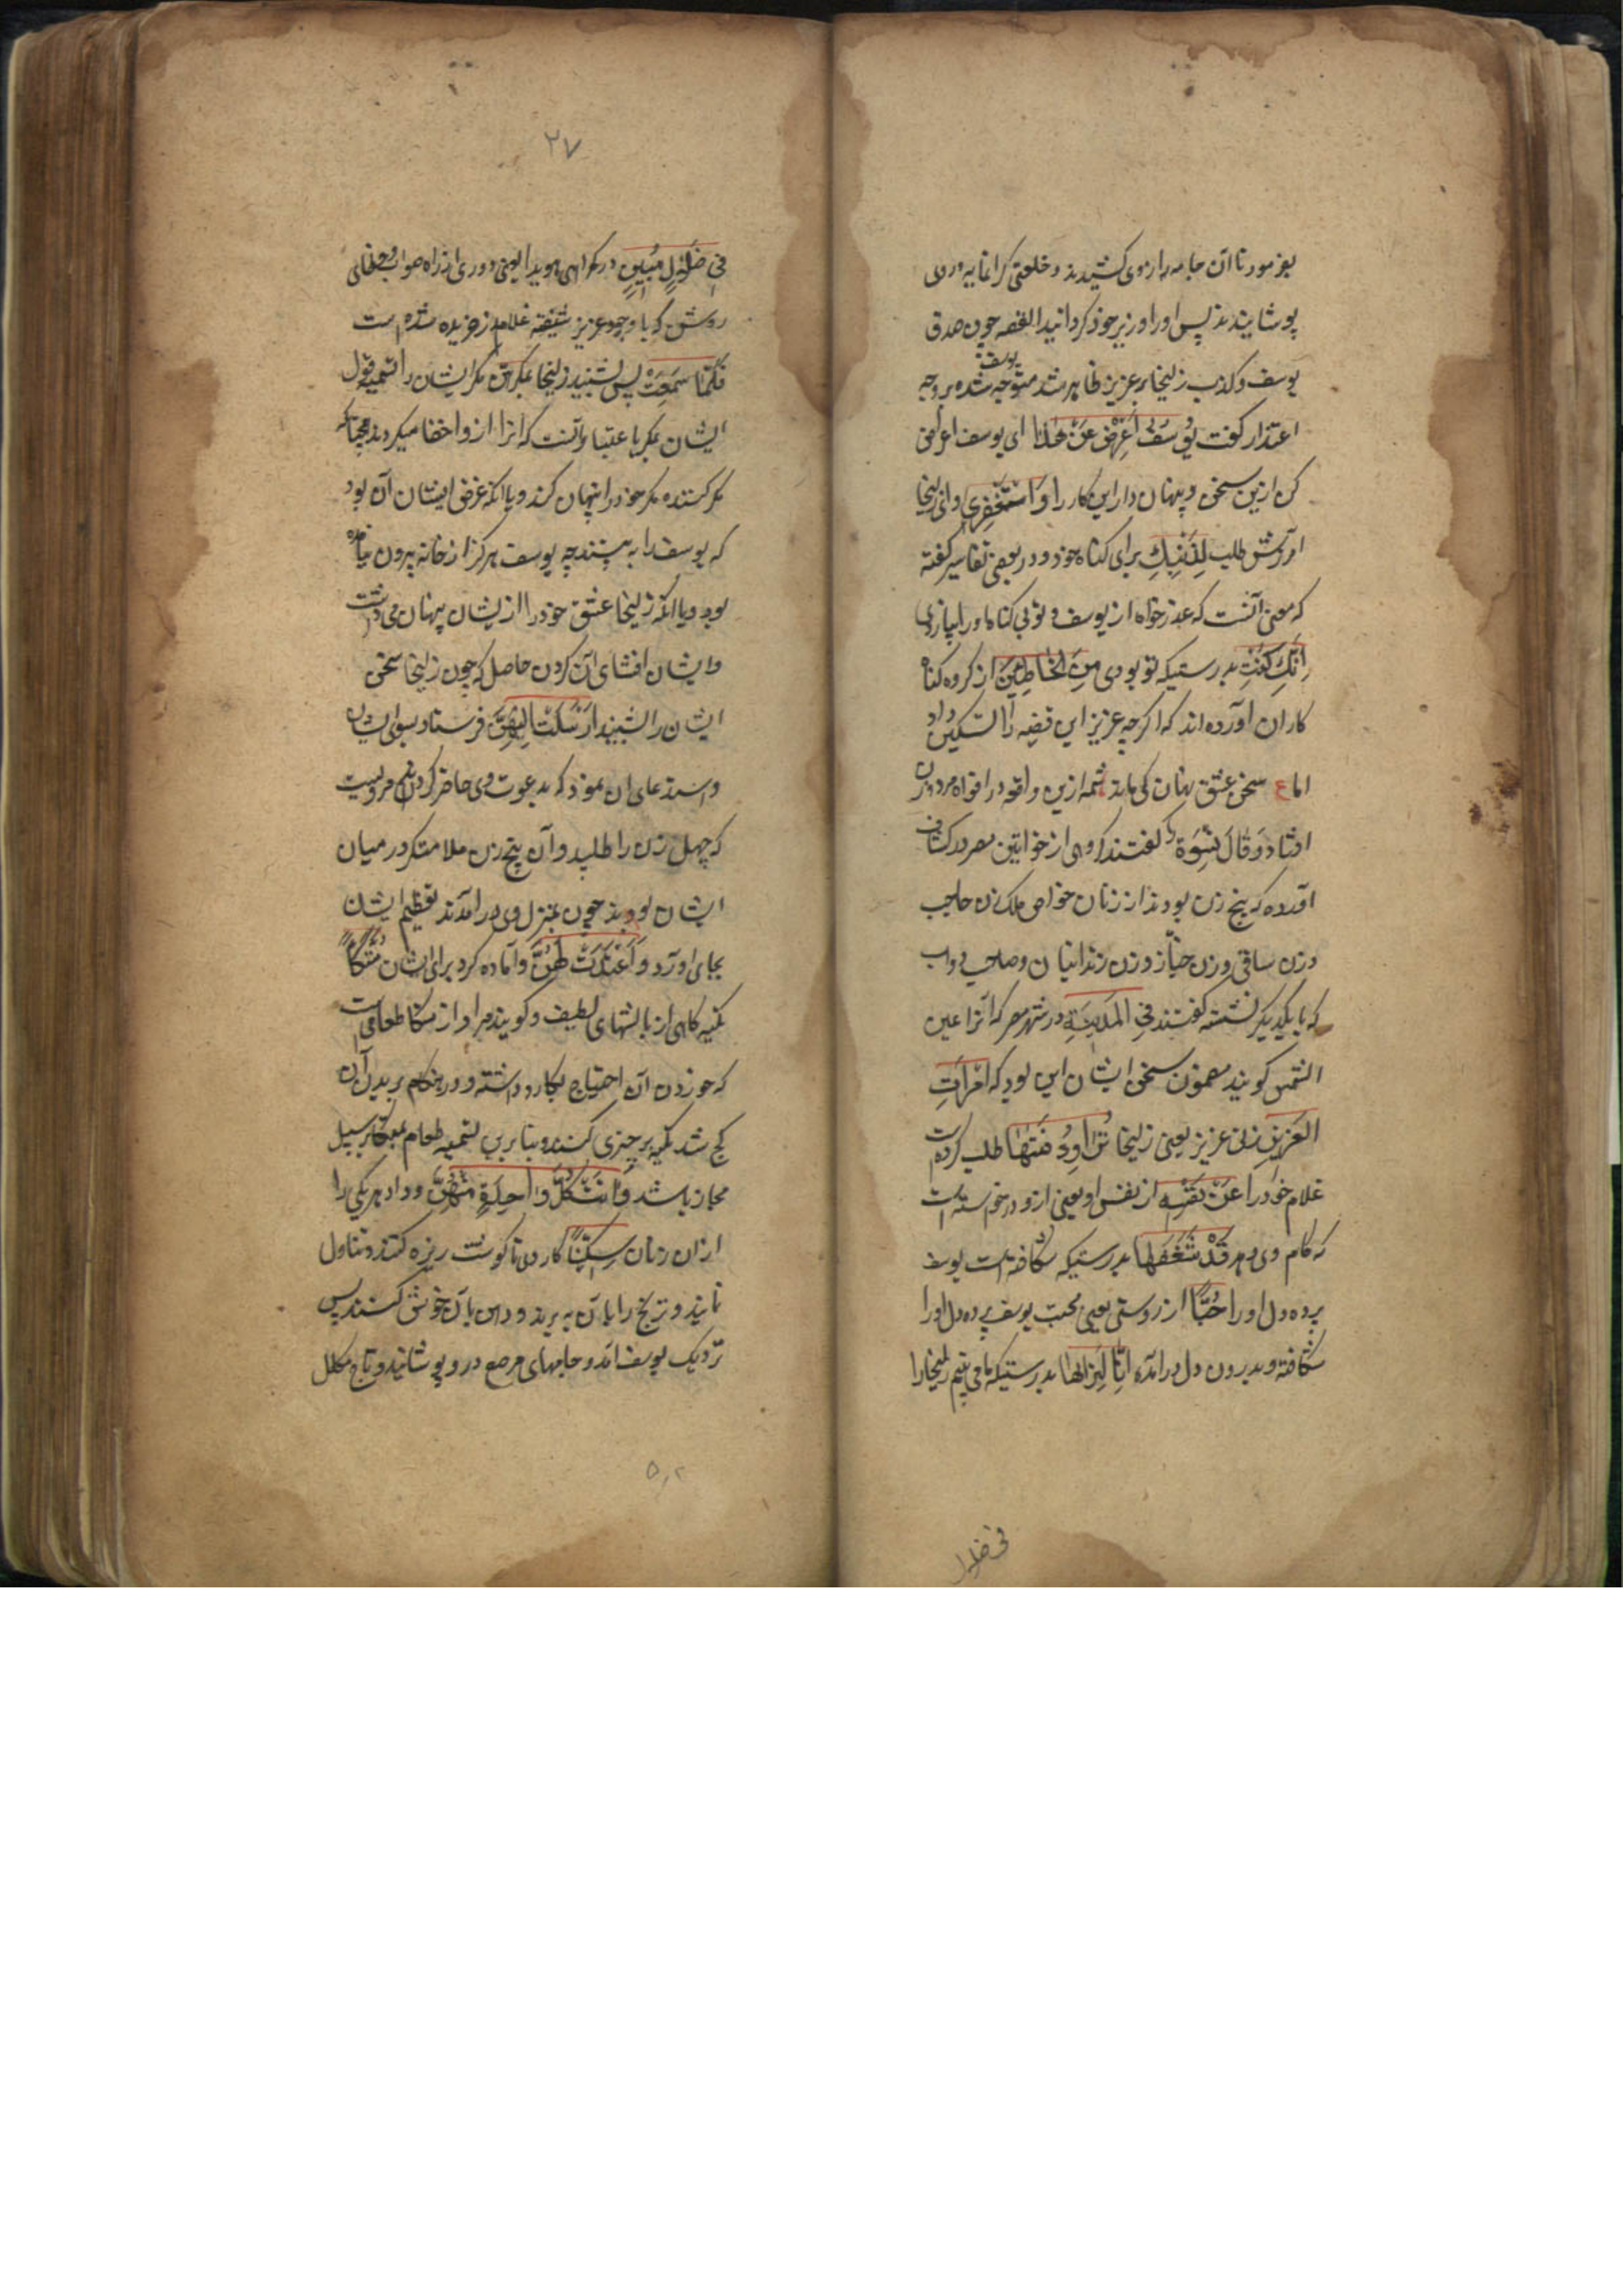 بفرمود تا آن جامه را از وی کشیدند و خلعتی گرانمایه در وی
پوشانیدند پس او را وزیر خود گردانید القصه چون صدق
یوسف و کذب زلیخا بر عزیز ظاهر شد متوجه یوسف شده بر وجه
اعتذار گفت یُوسُفُ اَعْرِضْ عَنْ هٰذَا ای یوسف اعراض
کن ازین سخن و پنهان دار این کار را وَاسْتَغْفِرِی و ای زلیخا
آمرزش طلب لِذَنْبِكِ برای گناه خود و در بعضی تفاسیر گفته
که معنی آنست که عذر خواه از یوسف
اِنَّكِ كُنْتِ بدرستیکه تو بودی مِنَ الْخَاطِئِینَ از گروه گناه
کاران آورده اند که اگرچه عزیز این قضیه را تسکین داد
اما ع سخن عشق نهان کی ماند شمه ازین واقعه در افواه مردمان
افتاد وَ قَالَ نِسْوَةٌ و گفتند گروهی از خواتین مصر در کشاف
آورده که پنج زن بودند از زنان خواص ملک زن حاجب
و زن ساقی و زن خباز و زن زندانیان و صاحب دواب
که با یکدیگر نشسته گفتند فِی الْمَدِینَةِ در شهر مصر که آنرا عین
الشمس گویند مضمون سخن ایشان این بود که امْرَاَتُ
الْعَزِیزِ زن عزیز یعنی زلیخا تُرَاوِدُ فَتٰهَا طلب کرده است
غلام خود را عَنْ نَفْسِهِ از نفس او یعنی ازو درخواسته است
که کام وی دهد قَدْ شَغَفَهَا بدرستیکه شکافته است یوسف
پرده دل او را حُبًّا از روی دوستی یعنی محبت یوسف پرده دل او را
شکافته و بدرون دل درآمده اِنَّا لَنَرٰاهَا بدرستیکه ما می بینیم زلیخا را
فی ضلال
۲۷
فِی ضَلٰلٍ مُبِینٍ در گمراهی هویدا یعنی دوری از راه صواب و خطای
روشن که با وجود عزیز شیفته غلام زر خریده شده است
فَلَمَّا سَمِعَتْ پس شنید زلیخا بِمَكْرِهِنَّ مکر ایشان را تسمیه قول
ایشان بمکر باعتبار آنست که آنرا ازو اخفا میکردند همچنانکه
مکر کننده مکر خود را پنهان کند و یا آنکه غرض ایشان آن بود
که یوسف را به بینند چه یوسف هرگز از خانه بیرون نیامده
بود و یا آنکه زلیخا عشق خود را از ایشان پنهان می داشت
و ایشان افشای آن کردن حاصل که چون زلیخا سخن
ایشان را شنید اَرْسَلَتْ اِلَیْهِنَّ فرستاد بسوی ایشان
و استدعای آن نمود که بدعوت وی حاضر گردند مرویست
که چهل زن را طلبید و آن پنج زن ملامتگر در میان
ایشان بودند چون بمنزل وی درآمدند تعظیم ایشان
بجای آورد وَ اَعْتَدَتْ لَهُنَّ و آماده کرد برای ایشان مُتَّكَاً
تکیه گاهی از بالشهای لطیف و گویند مراد از متکا طعامی است
که خوردن آن احتیاج بکارد داشته و در هنگام بریدن آن
کج شده تکیه بر چیزی کنند و بنا برین تسمیه طعام بمتکا بر سبیل
مجاز باشد وَ اٰتَتْ كُلَّ وَاحِدَةٍ مِنْهُنَّ و داد هر یکی را
از آن زنان سِكِّینًا کاردی تا گوشت ریزه کنند و تناول
نمایند و ترنج را بآن ببرند و دهن بآن خوش کنند پس
نزدیک یوسف آمد و جامهای مرصع در و پوشانید و تاج مکلل